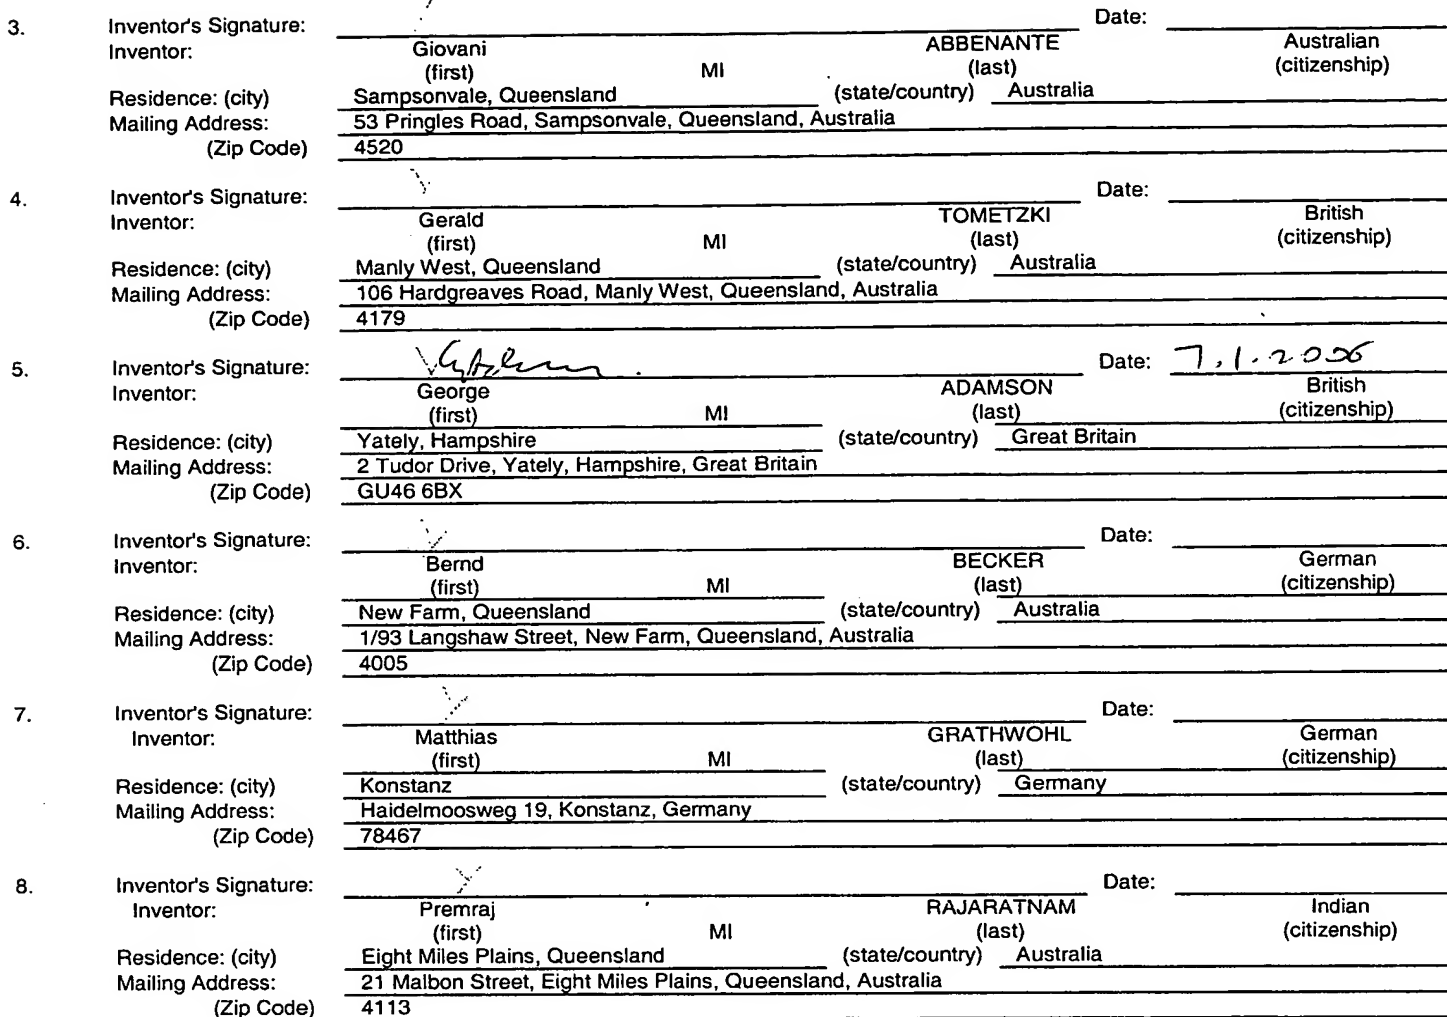 3. Inventor's Signature: Date:
Inventor: Giovani ABBENANTE Australian
(first) MI (last) (citizenship)
Residence: (city) Sampsonvale, Queensland (state/country) Australia
Mailing Address: 53 Pringles Road, Sampsonvale, Queensland, Australia
(Zip Code) 4520
4. Inventor's Signature: Date:
Inventor: Gerald TOMETZKI British
(first) MI (last) (citizenship)
Residence: (city) Manly West, Queensland (state/country) Australia
Mailing Address: 106 Hardgreaves Road, Manly West, Queensland, Australia
(Zip Code) 4179
5. Inventor's Signature: Date: 7.1.2006
Inventor: George ADAMSON British
(first) MI (last) (citizenship)
Residence: (city) Yately, Hampshire (state/country) Great Britain
Mailing Address: 2 Tudor Drive, Yately, Hampshire, Great Britain
(Zip Code) GU46 6BX
6. Inventor's Signature: Date:
Inventor: Bernd BECKER German
(first) MI (last) (citizenship)
Residence: (city) New Farm, Queensland (state/country) Australia
Mailing Address: 1/93 Langshaw Street, New Farm, Queensland, Australia
(Zip Code) 4005
7. Inventor's Signature: Date:
Inventor: Matthias GRATHWOHL German
(first) MI (last) (citizenship)
Residence: (city) Konstanz (state/country) Germany
Mailing Address: Haidelmoosweg 19, Konstanz, Germany
(Zip Code) 78467
8. Inventor's Signature: Date:
Inventor: Premraj RAJARATNAM Indian
(first) MI (last) (citizenship)
Residence: (city) Eight Miles Plains, Queensland (state/country) Australia
Mailing Address: 21 Malbon Street, Eight Miles Plains, Queensland, Australia
(Zip Code) 4113